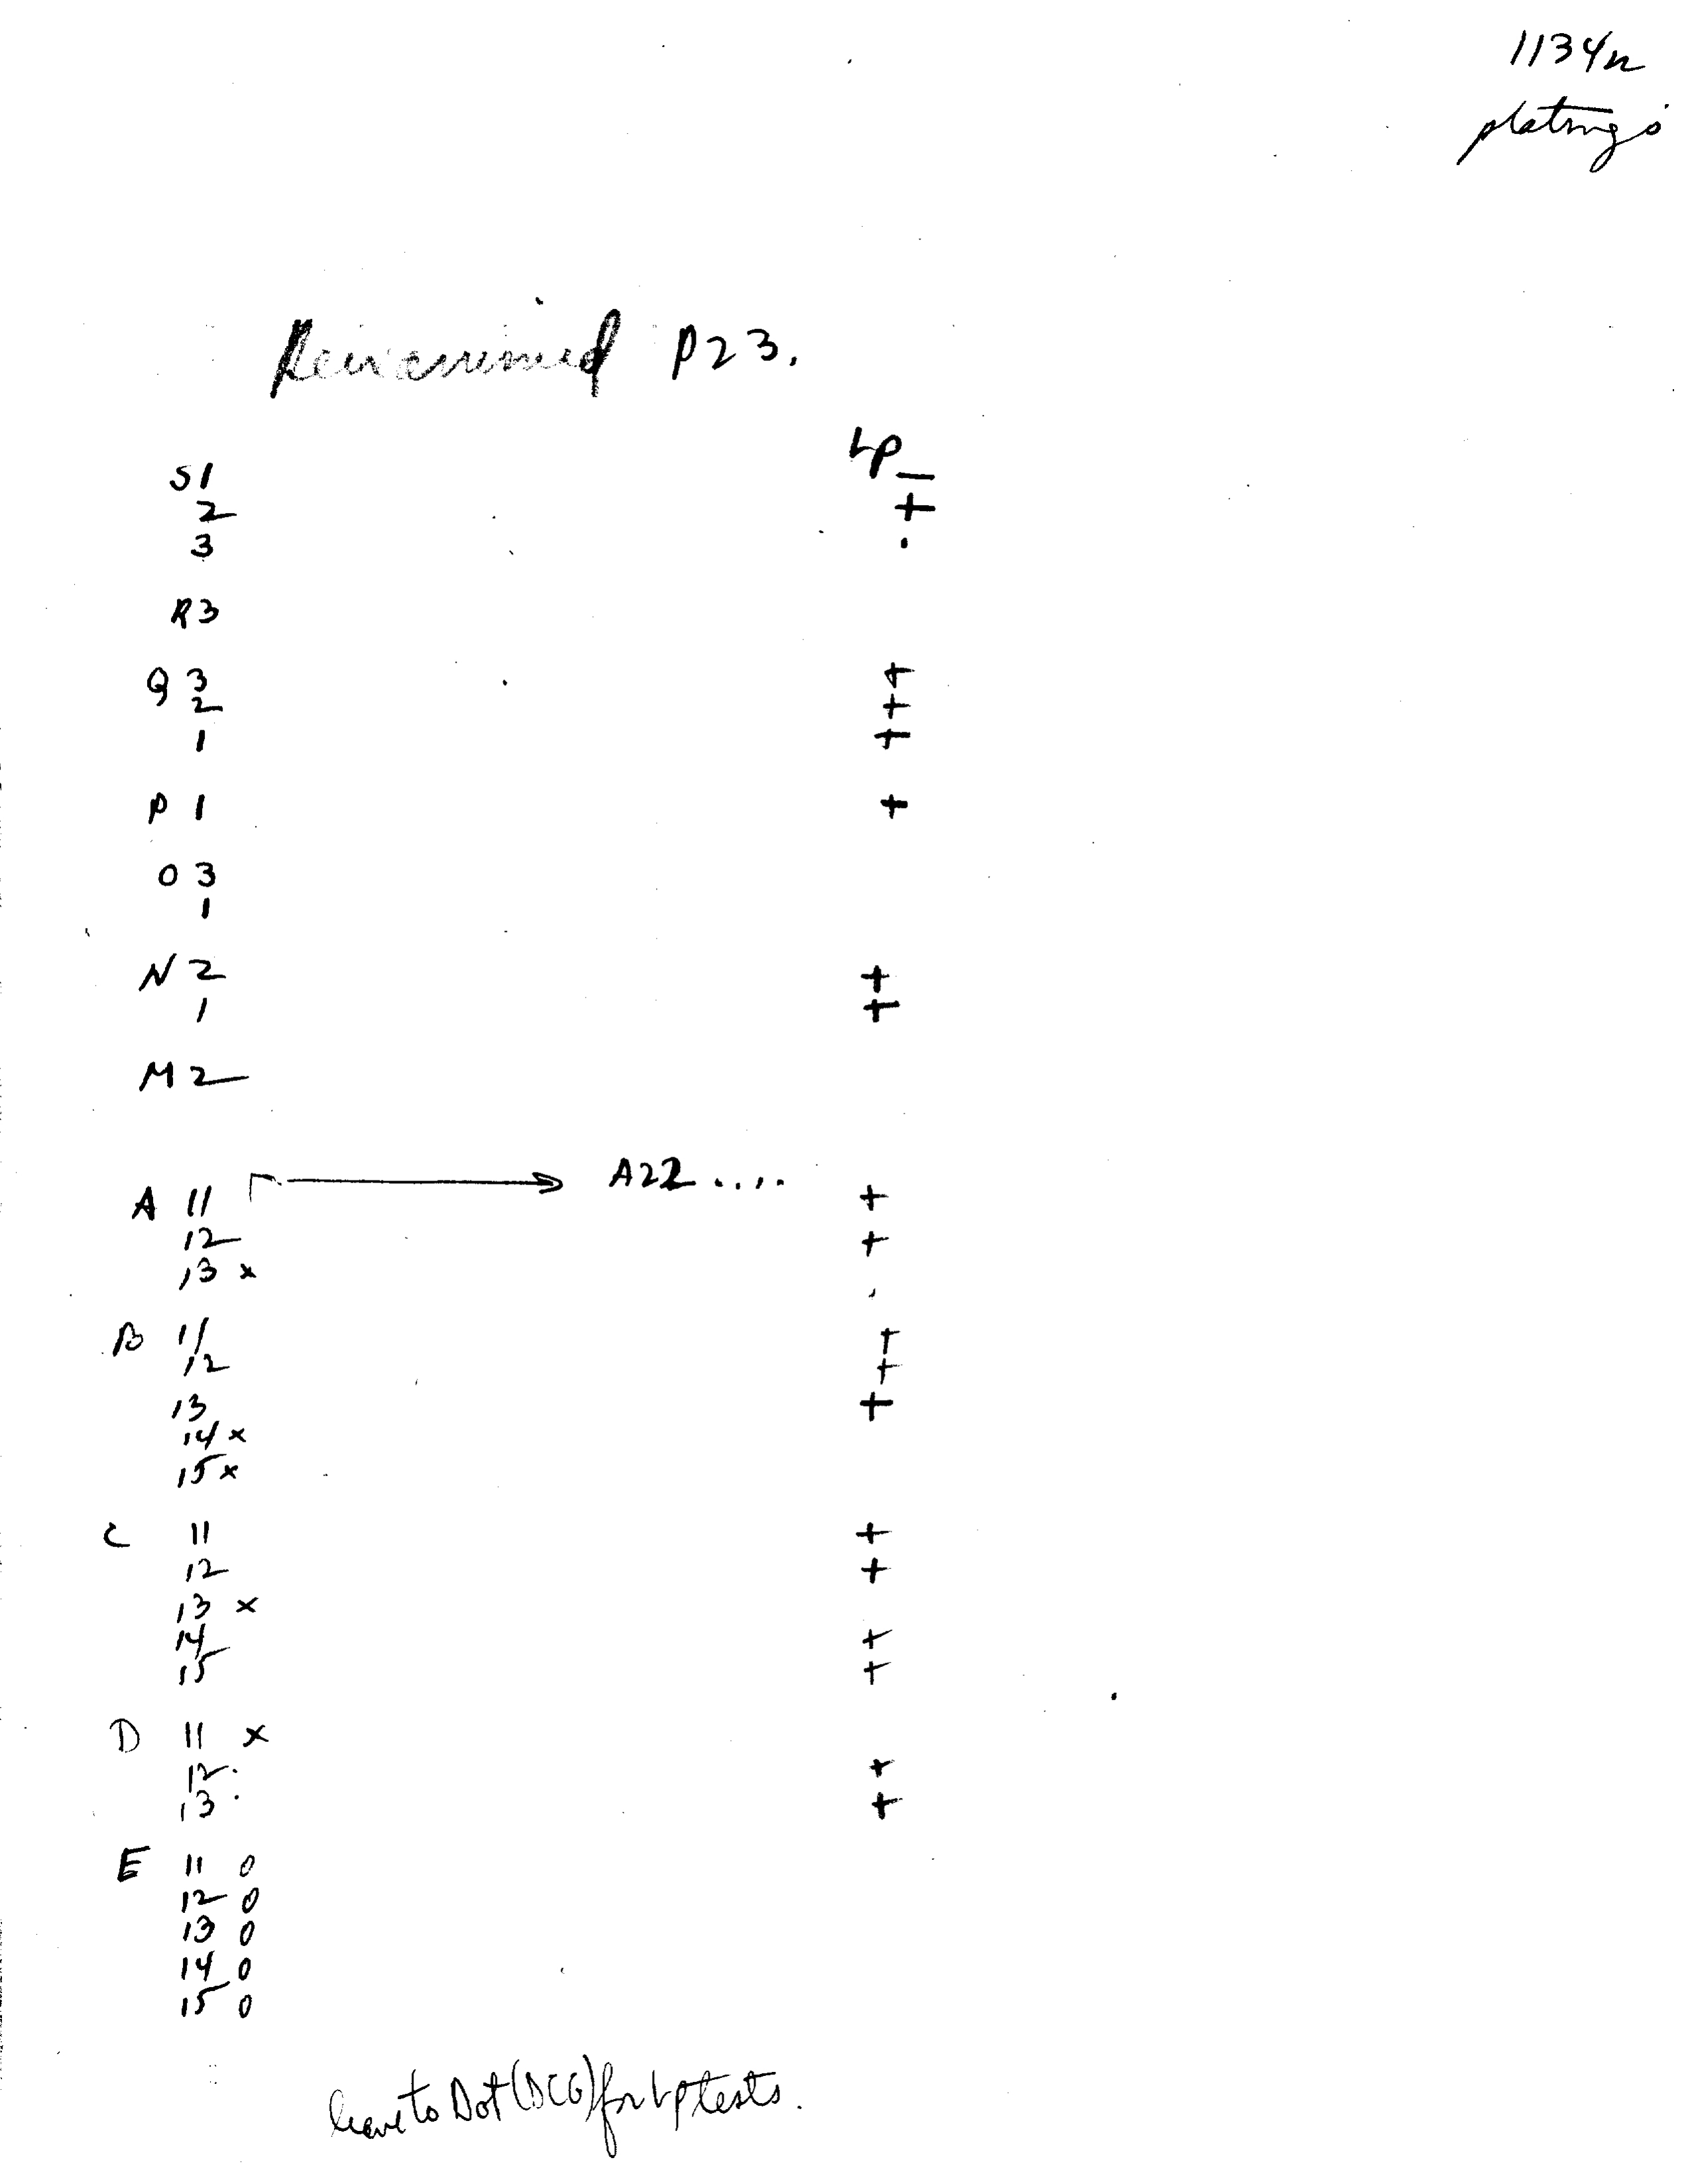 1134n
platings
P23.
Lp
S1 −
2 +
3 .
R3
Q 3 +
2 +
1 +
P 1 +
O 3
1
N 2 +
1 +
M 2
→ A22 ....
A 11 +
12 +
13 x .
B 11 +
12 +
13 +
14 x
15 x
C 11 +
12 +
13 x
14 +
15 +
D 11 x
12 . +
13 . +
E 11 0
12 0
13 0
14 0
15 0
leave to Dot (DCG) for Lp tests.